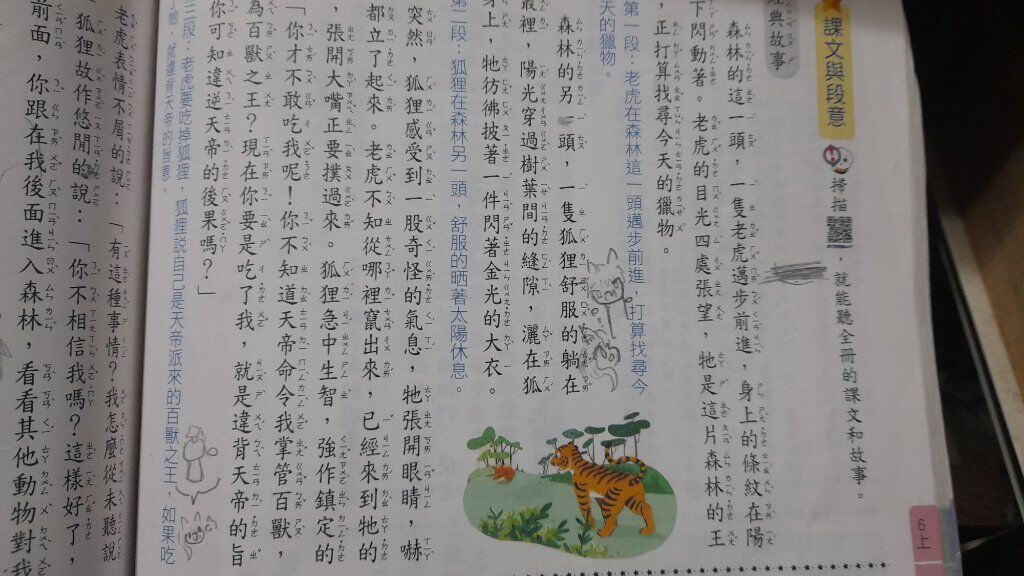 課文與段意
掃描，就能聽全冊的課文和故事。
經典故事
森林的這一頭，一隻老虎邁步前進，身上的條紋在陽
下閃動著。老虎的目光四處張望，牠是這片森林的王
，正打算找尋今天的獵物。
第一段：老虎在森林這一頭邁步前進，打算找尋今
天的獵物。
森林的另一頭，一隻狐狸舒服的躺在
叢裡，陽光穿過樹葉間的縫隙，灑在狐
身上，牠彷彿披著一件閃著金光的大衣。
第二段：狐狸在森林另一頭，舒服的晒著太陽休息。
突然，狐狸感受到一股奇怪的氣息，牠張開眼睛，嚇
都立了起來。老虎不知從哪裡竄出來，已經來到牠的
，張開大嘴正要撲過來。狐狸急中生智，強作鎮定的
「你才不敢吃我呢！你不知道天帝命令我掌管百獸，
為百獸之王？現在你要是吃了我，就是違背天帝的旨
你可知違逆天帝的後果嗎？」
三段：老虎要吃掉狐狸，狐狸說自己是天帝派來的百獸之王，如果吃
了牠，就違背天帝的旨意。
老虎表情不屑的說：「有這種事情？我怎麼從未聽說
狐狸故作悠閒的說：「你不相信我嗎？這樣好了，
前面，你跟在我後面進入森林，看看其他動物對我
6上